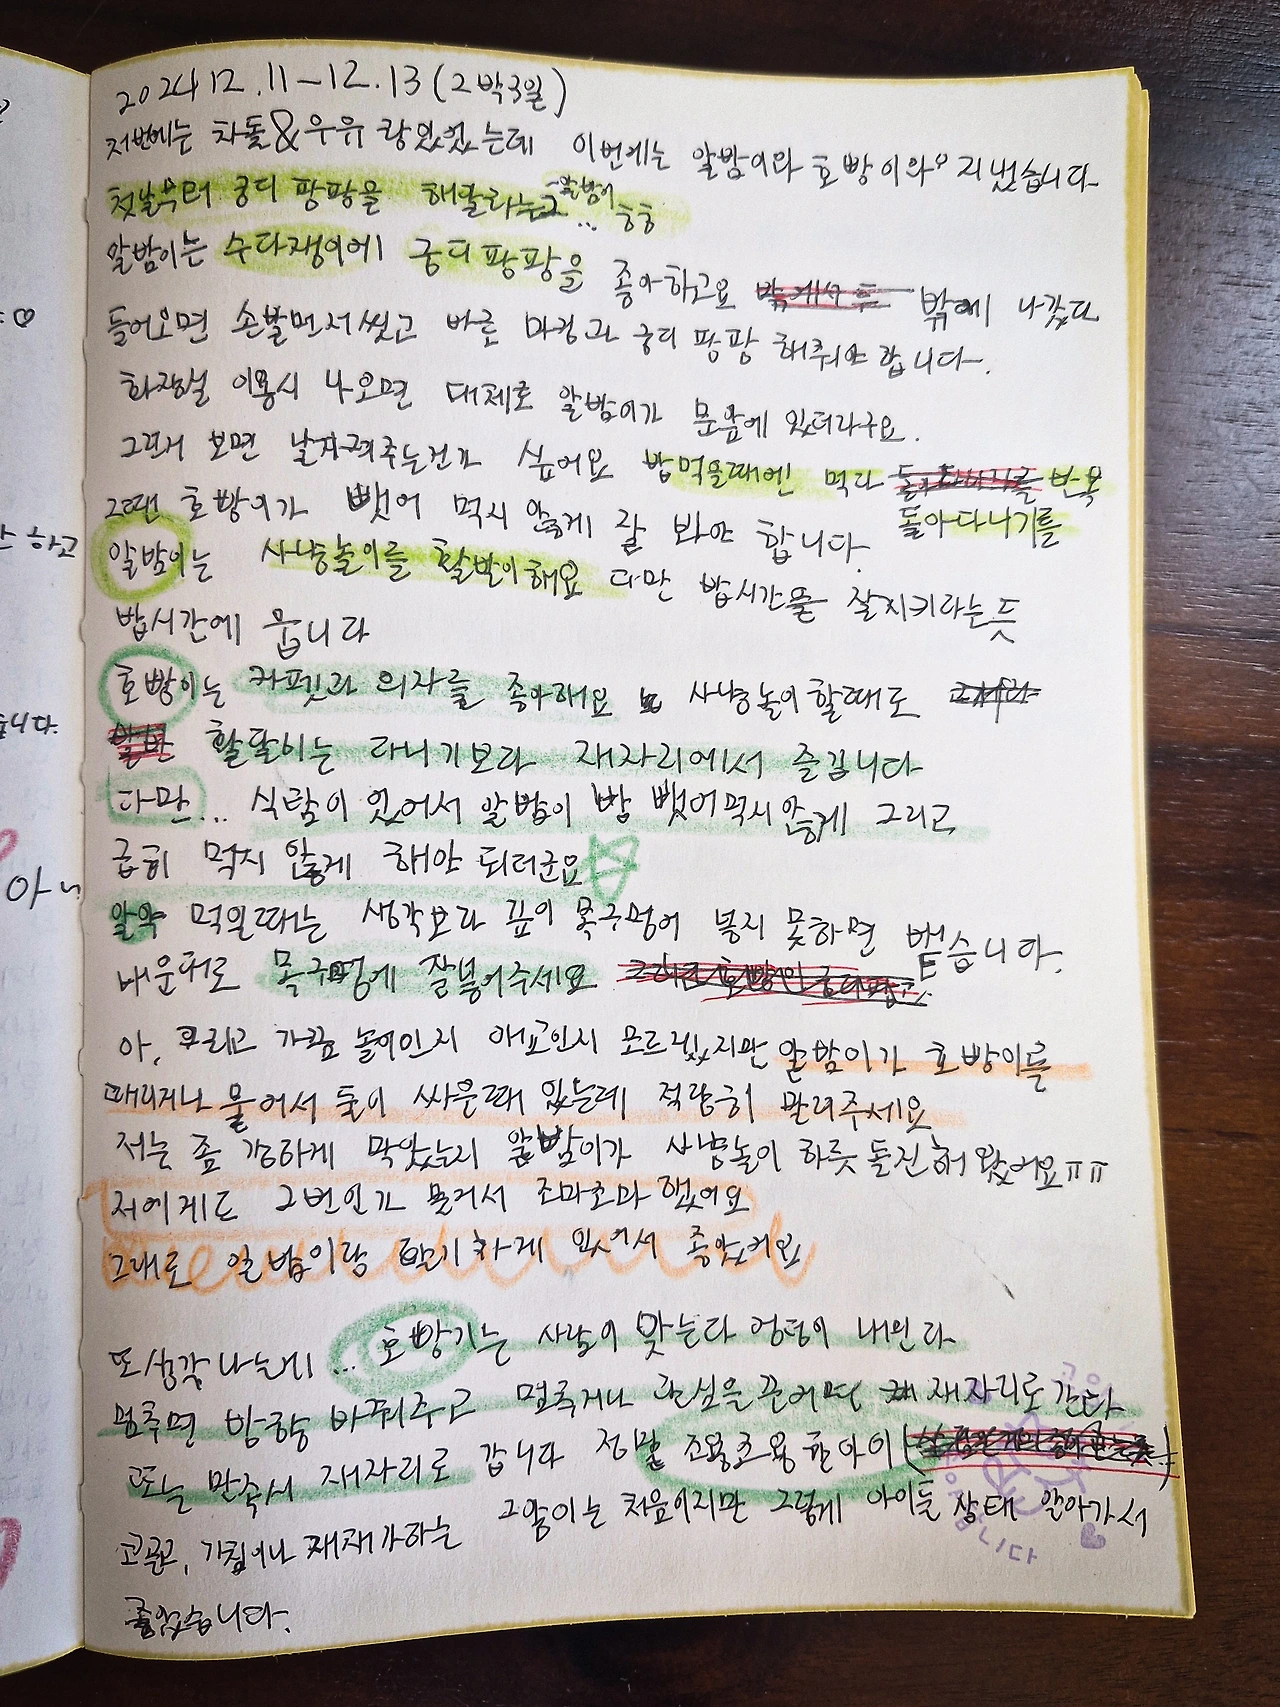 2024 12.11-12.13(2박3일)
저번에는 차돌&우유랑있었는데 이번에는 알밤이와 호빵이와 지냈습니다
첫날부터 궁디 팡팡을 해달라는 알밤이... ㅎㅎ
알밤이는 수다쟁이에 궁디팡팡을 좋아하고요 밖에 나갔다
들어오면 손발먼저씻고 바로 마킹과 궁디 팡팡 해줘야 합니다.
화장실 이용시 나오면 대체로 알밤이가 문앞에 있더라구요.
그런거 보면 날지켜주는건가 싶어요 밥먹을때에는 먹다 돌아다니기를 반복
그땐 호빵이가 뺏어 먹지 않게 잘 봐야 합니다.
알밤이는 사냥놀이를 활발이해요 다만 밥시간을 잘지키라는듯
밥시간에 웁니다
호빵이는 카펫과 의자를 좋아해요 사냥놀이할때도
활발이는 다니기보다 제자리에서 즐깁니다
다만... 식탐이 있어서 알밤이 밥 뺏어먹지않게 그리고
급히 먹지 않게 해야 되더군요
알약 먹일때는 생각보다 깊이 목구멍에 넣지 못하면 뱉습니다.
배운대로 목구멍에 잘넣어주세요
아, 그리고 가끔 놀이인지 애교인지 모르겠지만 알밤이가 호빵이를
때리거나 물어서 둘이 싸울때 있는데 적당히 말려주세요
저는 좀 강하게 막았는지 알밤이가 사냥놀이 하듯 돌진해왔어요ㅠㅠ
저에게도 그번인가 물거서 조마조마 했어요
그래도 알밤이랑 친하게 있어서 좋았어요
또 생각나는게... 호빵기는 사람이 맞는다 엉덩이 내민다
멈추면 방향 바꿔주고 멈추거나 관심을 끈어면 재자리로 간다
또는 만족시 재자리로 갑니다 정말 조용조용한아이
고른고, 가족이나 재채가하는 그알이는 처음이지만 그렇게 아이들 상태 알아가서
좋았습니다.